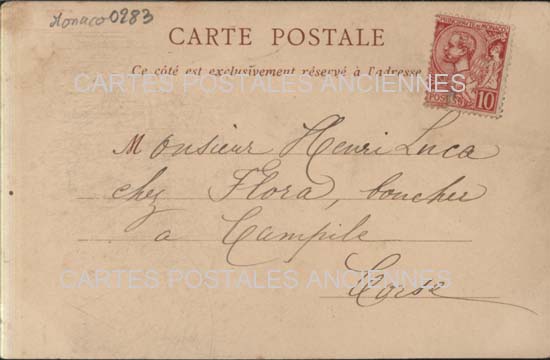 Monaco 0283
CARTE POSTALE
Ce côté est exclusivement réservé à l'adresse
CARTES POSTALES ANCIENNES
POSTES 10
Monsieur Henri Luca
chez Flora, boucher
a Campile
CARTES POSTALES ANCIENNES
Corse